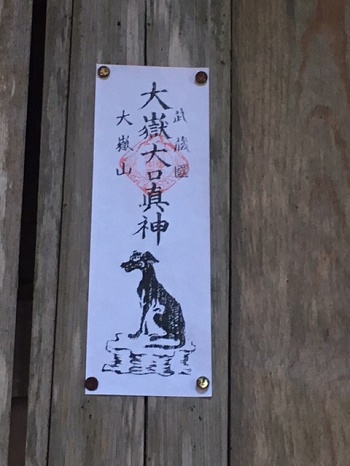 武蔵國
大嶽大口眞神
大嶽山